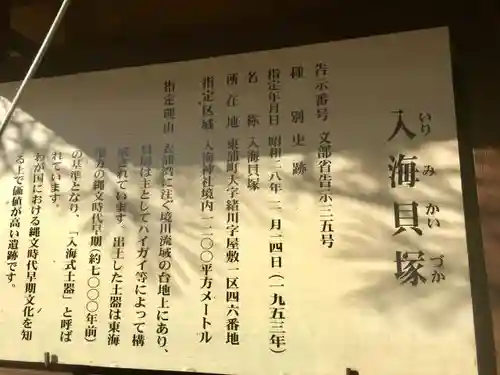 入海貝塚
いりみかいづか
告示番号 文部省告示三二五号
種別 史跡
指定年月日 昭和二八年一一月一四日(一九五三年)
名称 入海貝塚
所在地 東浦町大字緒川字屋敷一区四六番地
指定区域 入海神社境内一二〇〇平方メートル
指定理由 衣浦湾に注ぐ境川流域の台地上にあり、
貝層は主としてハイガイ等によって構
成されています。出土した土器は東海
地方の縄文時代早期(約七〇〇〇年前)
の基準となり、「入海式土器」と呼ば
れています。
わが国における縄文時代早期文化を知
る上で価値が高い遺跡です。